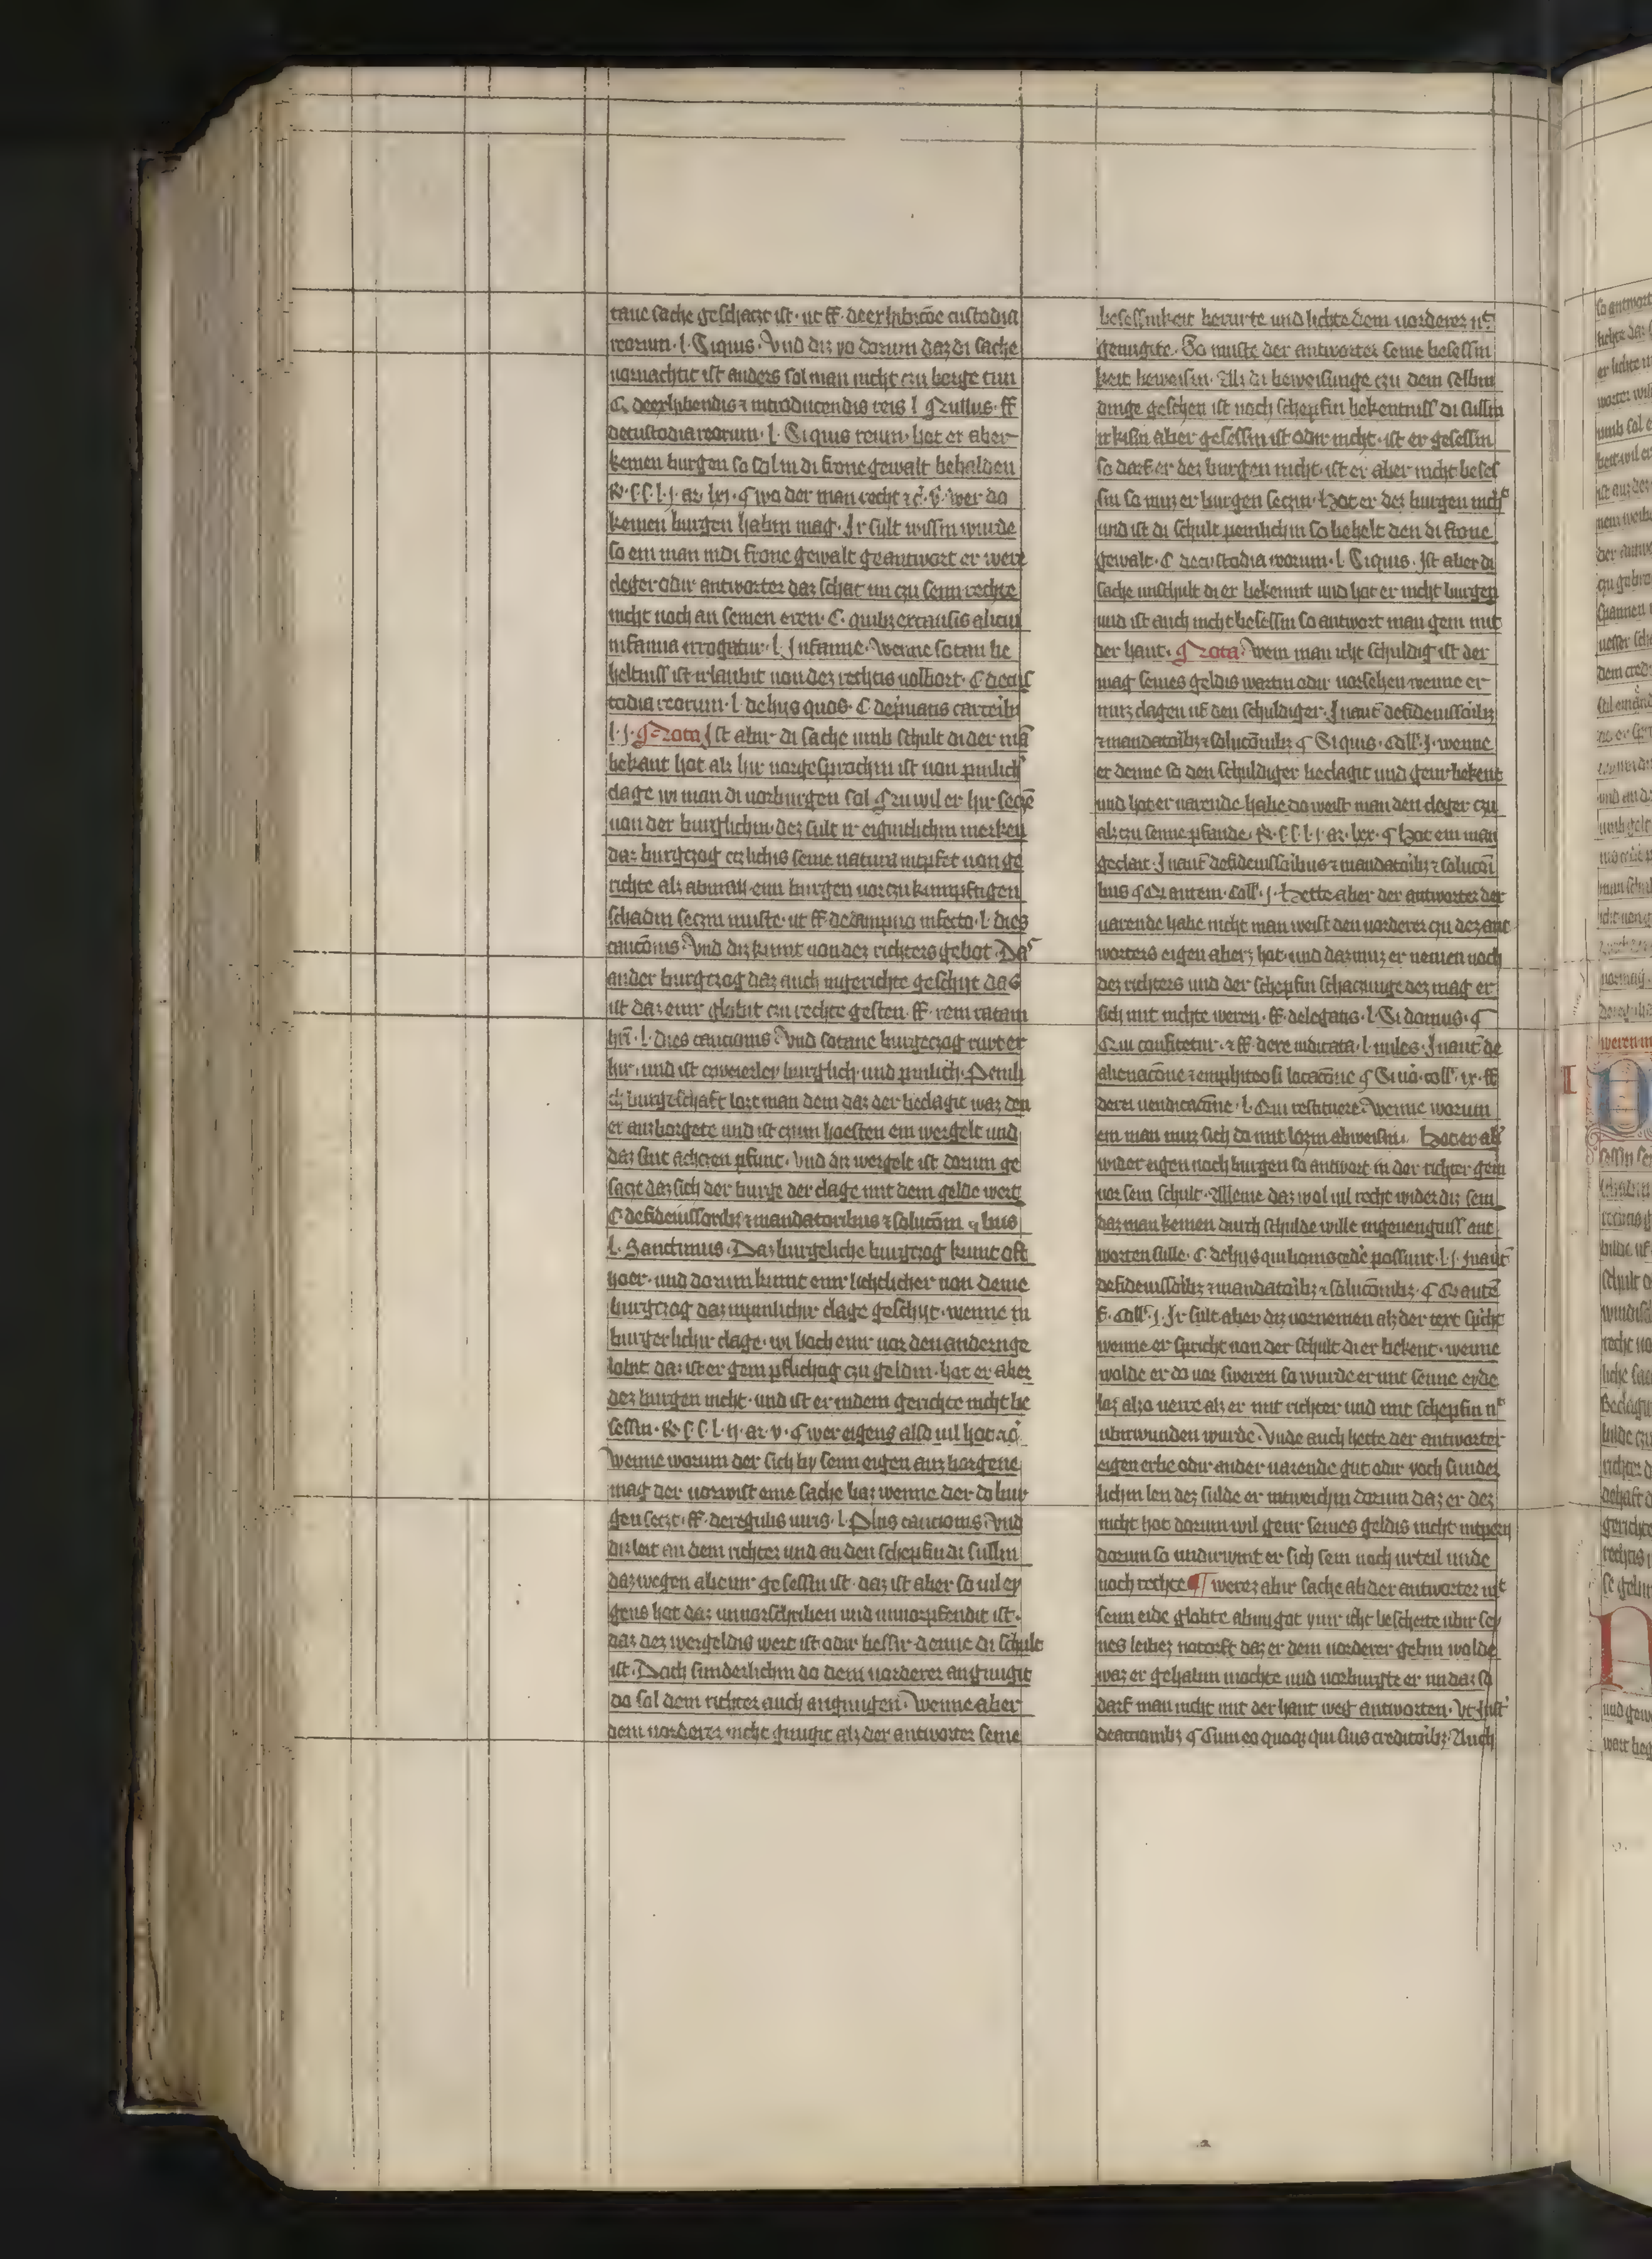 tane sache geschazt ist · ut ff · de exhibicōe custodia
reorum · l · Siquis · Vnd diz yo dorum daz di sache
uornachtit ist anders sol man nicht czu borge tun
C · de exhibendis ⁊ introducendis reis l nullus · ff
de custodia reorum · l · Siquis reum · hot er aber
keinen burgen so sol in di frone gewalt behalden
wo der man recht ⁊c̄ · v̄ · wer do
keinen burgen habin mag · Ir sult wissin wurde
so ein man in di frone gewalt geantwort er were
cleger odir antworter daz schat im czu seim rechte
nicht noch an seinen eren · C · quibz ex causis alicui
infamia irrogatur · l · Infamie · wenne sotan be
heltniss ist irlaubit uon dez rechtis uolbort · C de cus
todia reorum · l · de hiis quos · C de priuatis carceribz
l · j · Nota Ist abir di sache umb schult di der mā
bekant hot alz hir uorgesprochin ist uon pinlich
clage wi man di uorburgen sol Nu wil er hir secze
uon der burglichin · dez sult ir eigintlichin merken
daz burgczog eczlichis seine natura intpfet uon ge
richte alz ab man ein burgen uor czukumpftigen
schadin seczin muste · ut ff · de dampno infecto · l · dies
caucōnis · Vnd diz kumt uon dez richters gebot · Daz
ander burgczog daz auch in gerichte geschiit das
ist daz einr globit czu rechte gesten · ff · rem ratam
hr̄i · l · dies caucionis · Vnd sotane burgeczog rurt er
hir · und ist czweierley burglich · und pinlich · Peinli
ch burgeschaft lozt man dem daz der beclagte waz den
er auzborgete und ist czum hoesten ein wergelt und
daz sint achczen pfunt · Vnd diz wergelt ist dorum ge
saczt daz sich der burge der clage mit dem gelde wert
C de fideiussoribz ⁊ mandatoribus ⁊ solucōnibus
l · Sanctimus · Daz burgeliche burgczog kumt oft
hoer · und dorum kumt einr lichtlicher uon deme
burgczog daz in pinlichir clage geschiit · wenne in
burgerlichir clage · wi hoch einr uor den andern ge
lobit daz ist er gem pflichtig czu geldin · hot er aber
dez burgen nicht · und ist er in dem gerichte nicht be
sessin · l · ij · ar · v · wer eigens also uil hot ⁊c̄
wenne worum der sich by seim eigen auz borgene
mag der uorwist eine sache baz wenne der do bur
gen seczt · ff · de regulis iuris · l · Plus caucionis · Vnd
diz leit an dem richter und an den schepfin di sullin
daz wegen ab einr gesessin ist · daz ist aber so uil ey
gens hot daz unuorschriben und unuorpfendit ist ·
daz dez wergeldis wert ist odir bessir denne di schult
ist · Doch sunderlichin do dem uorderer an gnugit
do sol dem richter auch an gnugen · Wenne aber
dem uorderer nicht gnugit alz der antworter seine
besessinkeit berurte und lichte dem uorderer nt
genugite · So muste der antworter seine besessin
keit beweisin · Alz di beweisunge czu dem selbin
dinge geschen ist noch schepfin bekentniss di sullin
irkisin aber gesessin ist odir nicht · ist er gesessin
so darf er dez burgen nicht · ist er aber nicht beses
sin so muz er burgen seczin · Hot er dez burgen nicht
und ist di schult peinlichin so behelt den di frone
gewalt · C de custodia reorum · l · Siquis · Ist aber di
sache umb schult di er bekennt und hot er nicht burgen
und ist auch nicht besessin so antwort man gem mit
der hant · Nota · Wem man icht schuldig ist der
mag seines geldis wartin odir uorsehen wenne er
muz clagen uf den schuldiger · In aut̄ de fideiussoribz
⁊ mandatoribz ⁊ solucōnibz Siquis · coll · j · wenne
er denne so den schuldiger beclagit und genr bekent
und hot er uarende habe do weist man den cleger czu
alz czu seime pfande · l · j · ar · lxx · Hot ein man
geclait · In aut̄ de fideiussoribus ⁊ mandatoribz ⁊ solucōni
bus autem · coll · j · Hette aber der antworter der
uarende habe nicht man weist den uorderer czu dez ant
worters eigen ab erz hot · und daz muz er nemen noch
dez richters und der schepfin schaczunge dez mag er
sich mit nichte weren · ff · de legatis · l · Si domus ·
Qui confitetur · ⁊ ff · de re iudicata · l · miles · In aut̄ de
alienacōne ⁊ emphiteosi locacōne Si uō · coll · ix · ff
de rei uendicacōne · l · Qui restituere · Wenne worum
ein man muz sich do mit lozin abweisin · Hot er abir
wider eigen noch burgen so antwort in der richter gem
uor sein schult · Alleine daz wol uil recht wider diz sein
daz man keinen durch schulde wille in geuengniss ant
worten sulle · C · de hiis qui bonis cede possunt · l · j · In aut̄
de fideiussoribz ⁊ mandatoribz ⁊ solucōnibz · autē
coll · j · Ir sult aber diz uornemen alz der text spricht
wenne er spricht uon der schult di er bekent · wenne
wolde er do uor sweren so wurde er mit seime eyde
loz alzo uerre alz er mit richter und mit schepfin nt
ubirwunden wurde · Vnde auch hette der antworter
eigen erbe odir ander uarende gut odir voch sunder
lichin len dez sulde er intweichin dorum daz er dez
nicht hot dorum wil genr seines geldis nicht inpern
dorum so undirwint er sich sein noch urteil unde
noch rechte ¶ werez abir sache ab der antworter mit
seim eide globte ab im got ymir icht bescherte ubir sey
nes leibez notorft daz er dem uorderer gebin wolde
waz er gehabin mochte und uorburgte er im daz so
darf man nicht mit der hant weg antworten · Vt Inst
de actionibz Sum eo quoqz qui suis creditoribz · Auch